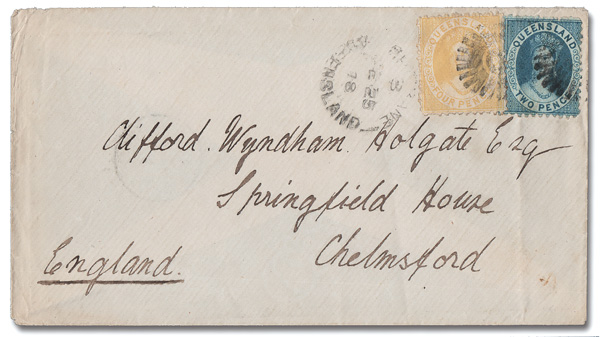 QUEENSLAND
FOUR PEN
QUEENSLAND
TWO PENCE
3
25
78
Clifford Wyndham Holgate Esq
Springfield House
Chelmsford
England.